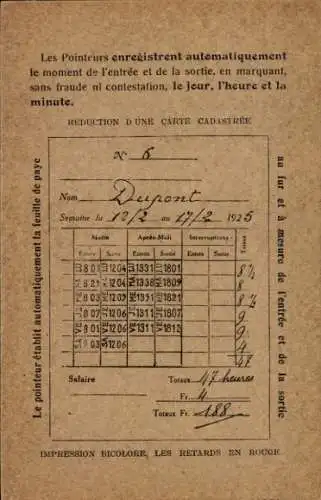 Les Pointeurs enregistrent automatiquement
le moment de l'entrée et de la sortie, en marquant,
sans fraude ni contestation, le jour, l'heure et la
minute.
REDUCTION D'UNE CARTE CADASTRÉE
Le pointeur établit automatiquement la feuille de paye
au fur et à mesure de l'entrée et de la sortie
N° 6
Nom Dupont
Semaine du 12/2 au 17/2 1925
Matin Après-Midi Interruptions Totaux
Entrée Sortie Entrée Sortie Entrée Sortie
801 1204 1331 1801 8 ½
821 1204 1338 1809 8
803 1202 1331 1821 8 ½
1206 1311 1807 9
901 1206 1311 1812
903 1206 4
47
Salaire Totaux 47 heures
Fr. 4
Totaux Fr. 188
IMPRESSION BICOLORE, LES RETARDS EN ROUGE